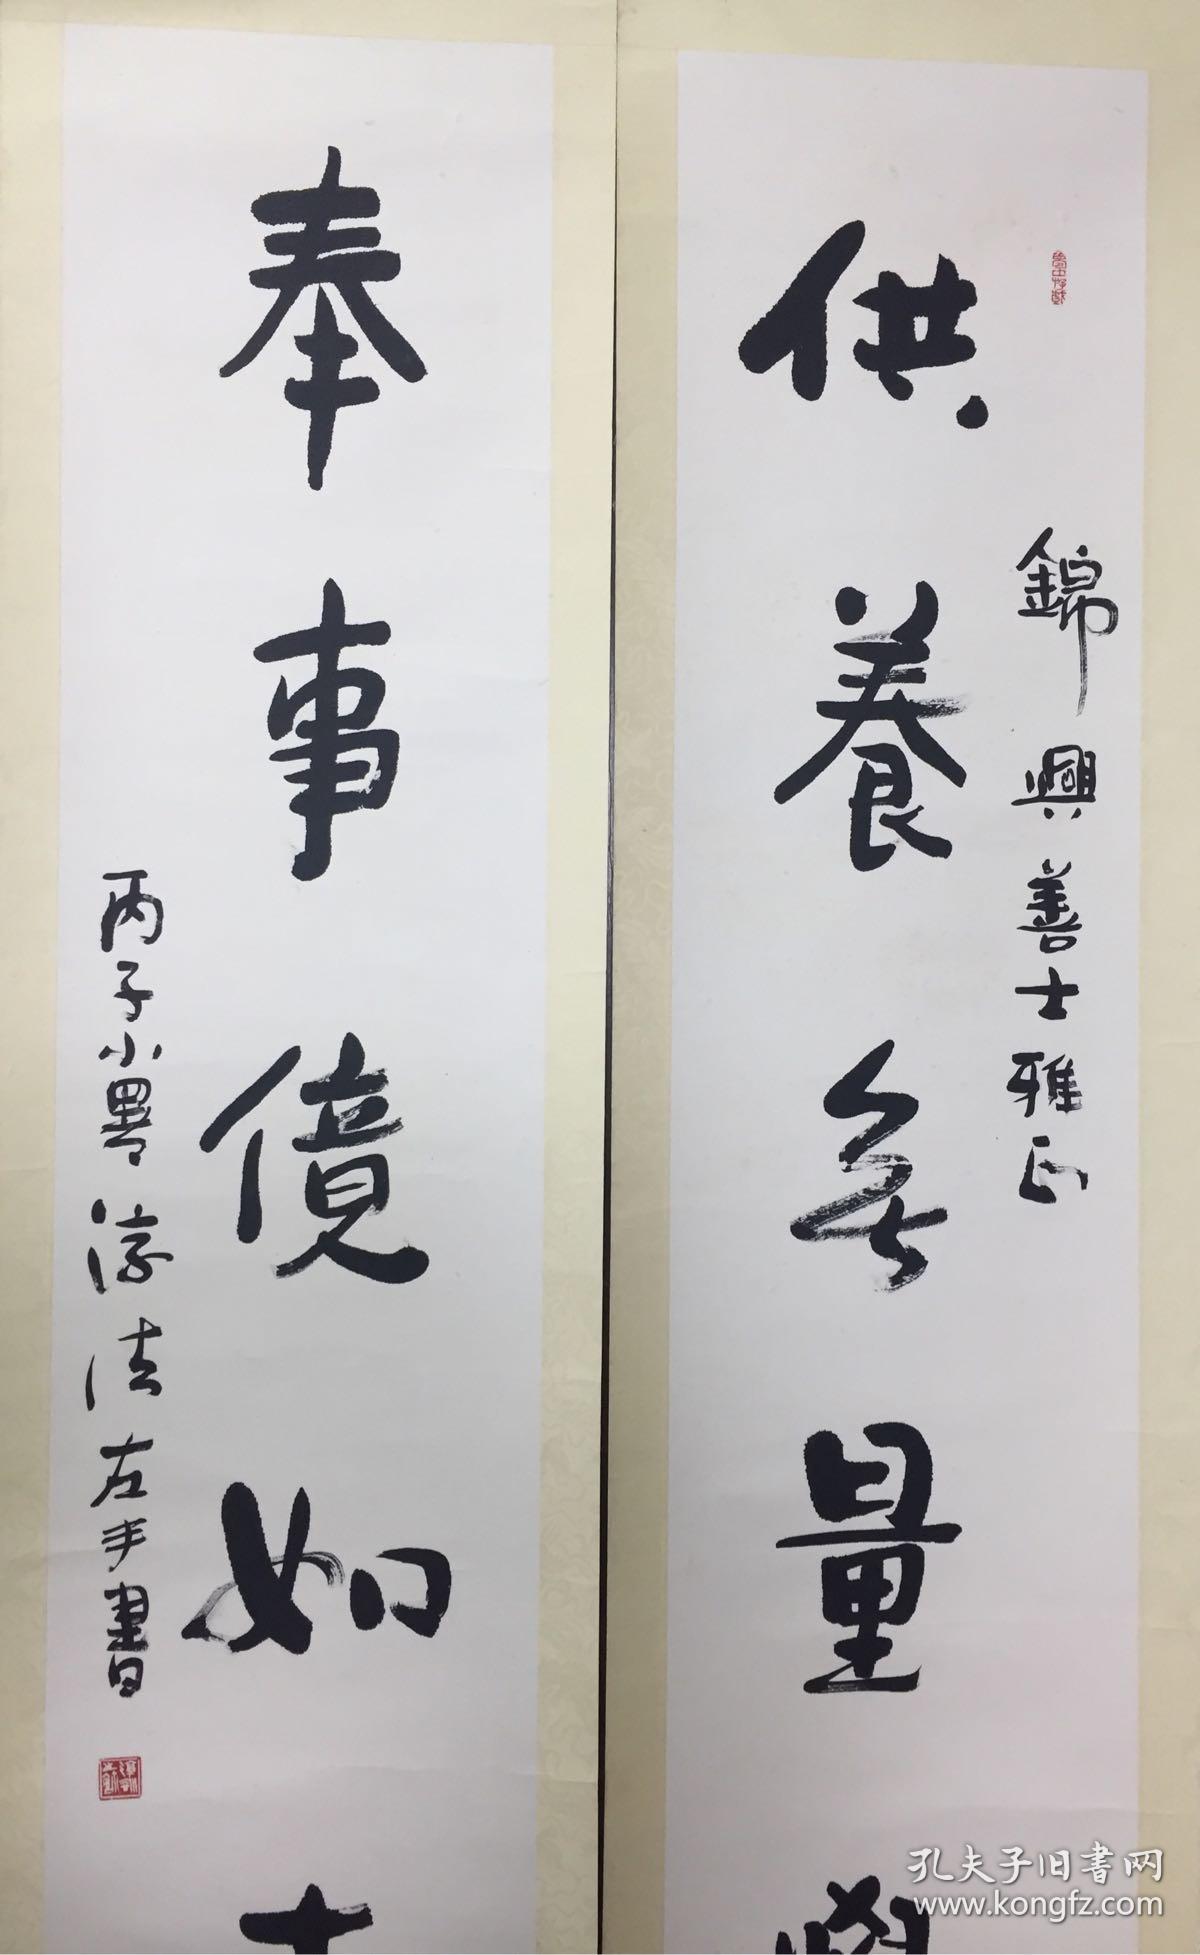 錦興善士雅正
供養無量
奉事億如
丙子小暑淳法左手書
孔夫子旧書网
www.kongfz.com